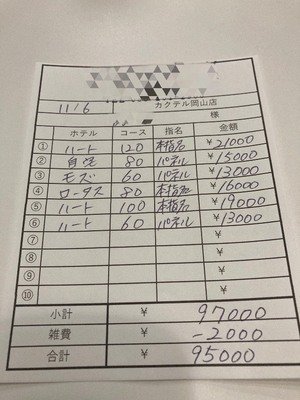 カクテル岡山店
11/6 様
ホテル コース 指名 金額
① ハート 120 本指名 ¥21000
② 自宅 80 パネル ¥15000
③ モズ 60 パネル ¥13000
④ ロータス 80 本指名 ¥16000
⑤ ハート 100 本指名 ¥19000
⑥ ハート 60 パネル ¥13000
⑦ ¥
⑧ ¥
⑨ ¥
⑩ ¥
小計 ¥ 97000
雑費 ¥ -2000
合計 ¥ 95000